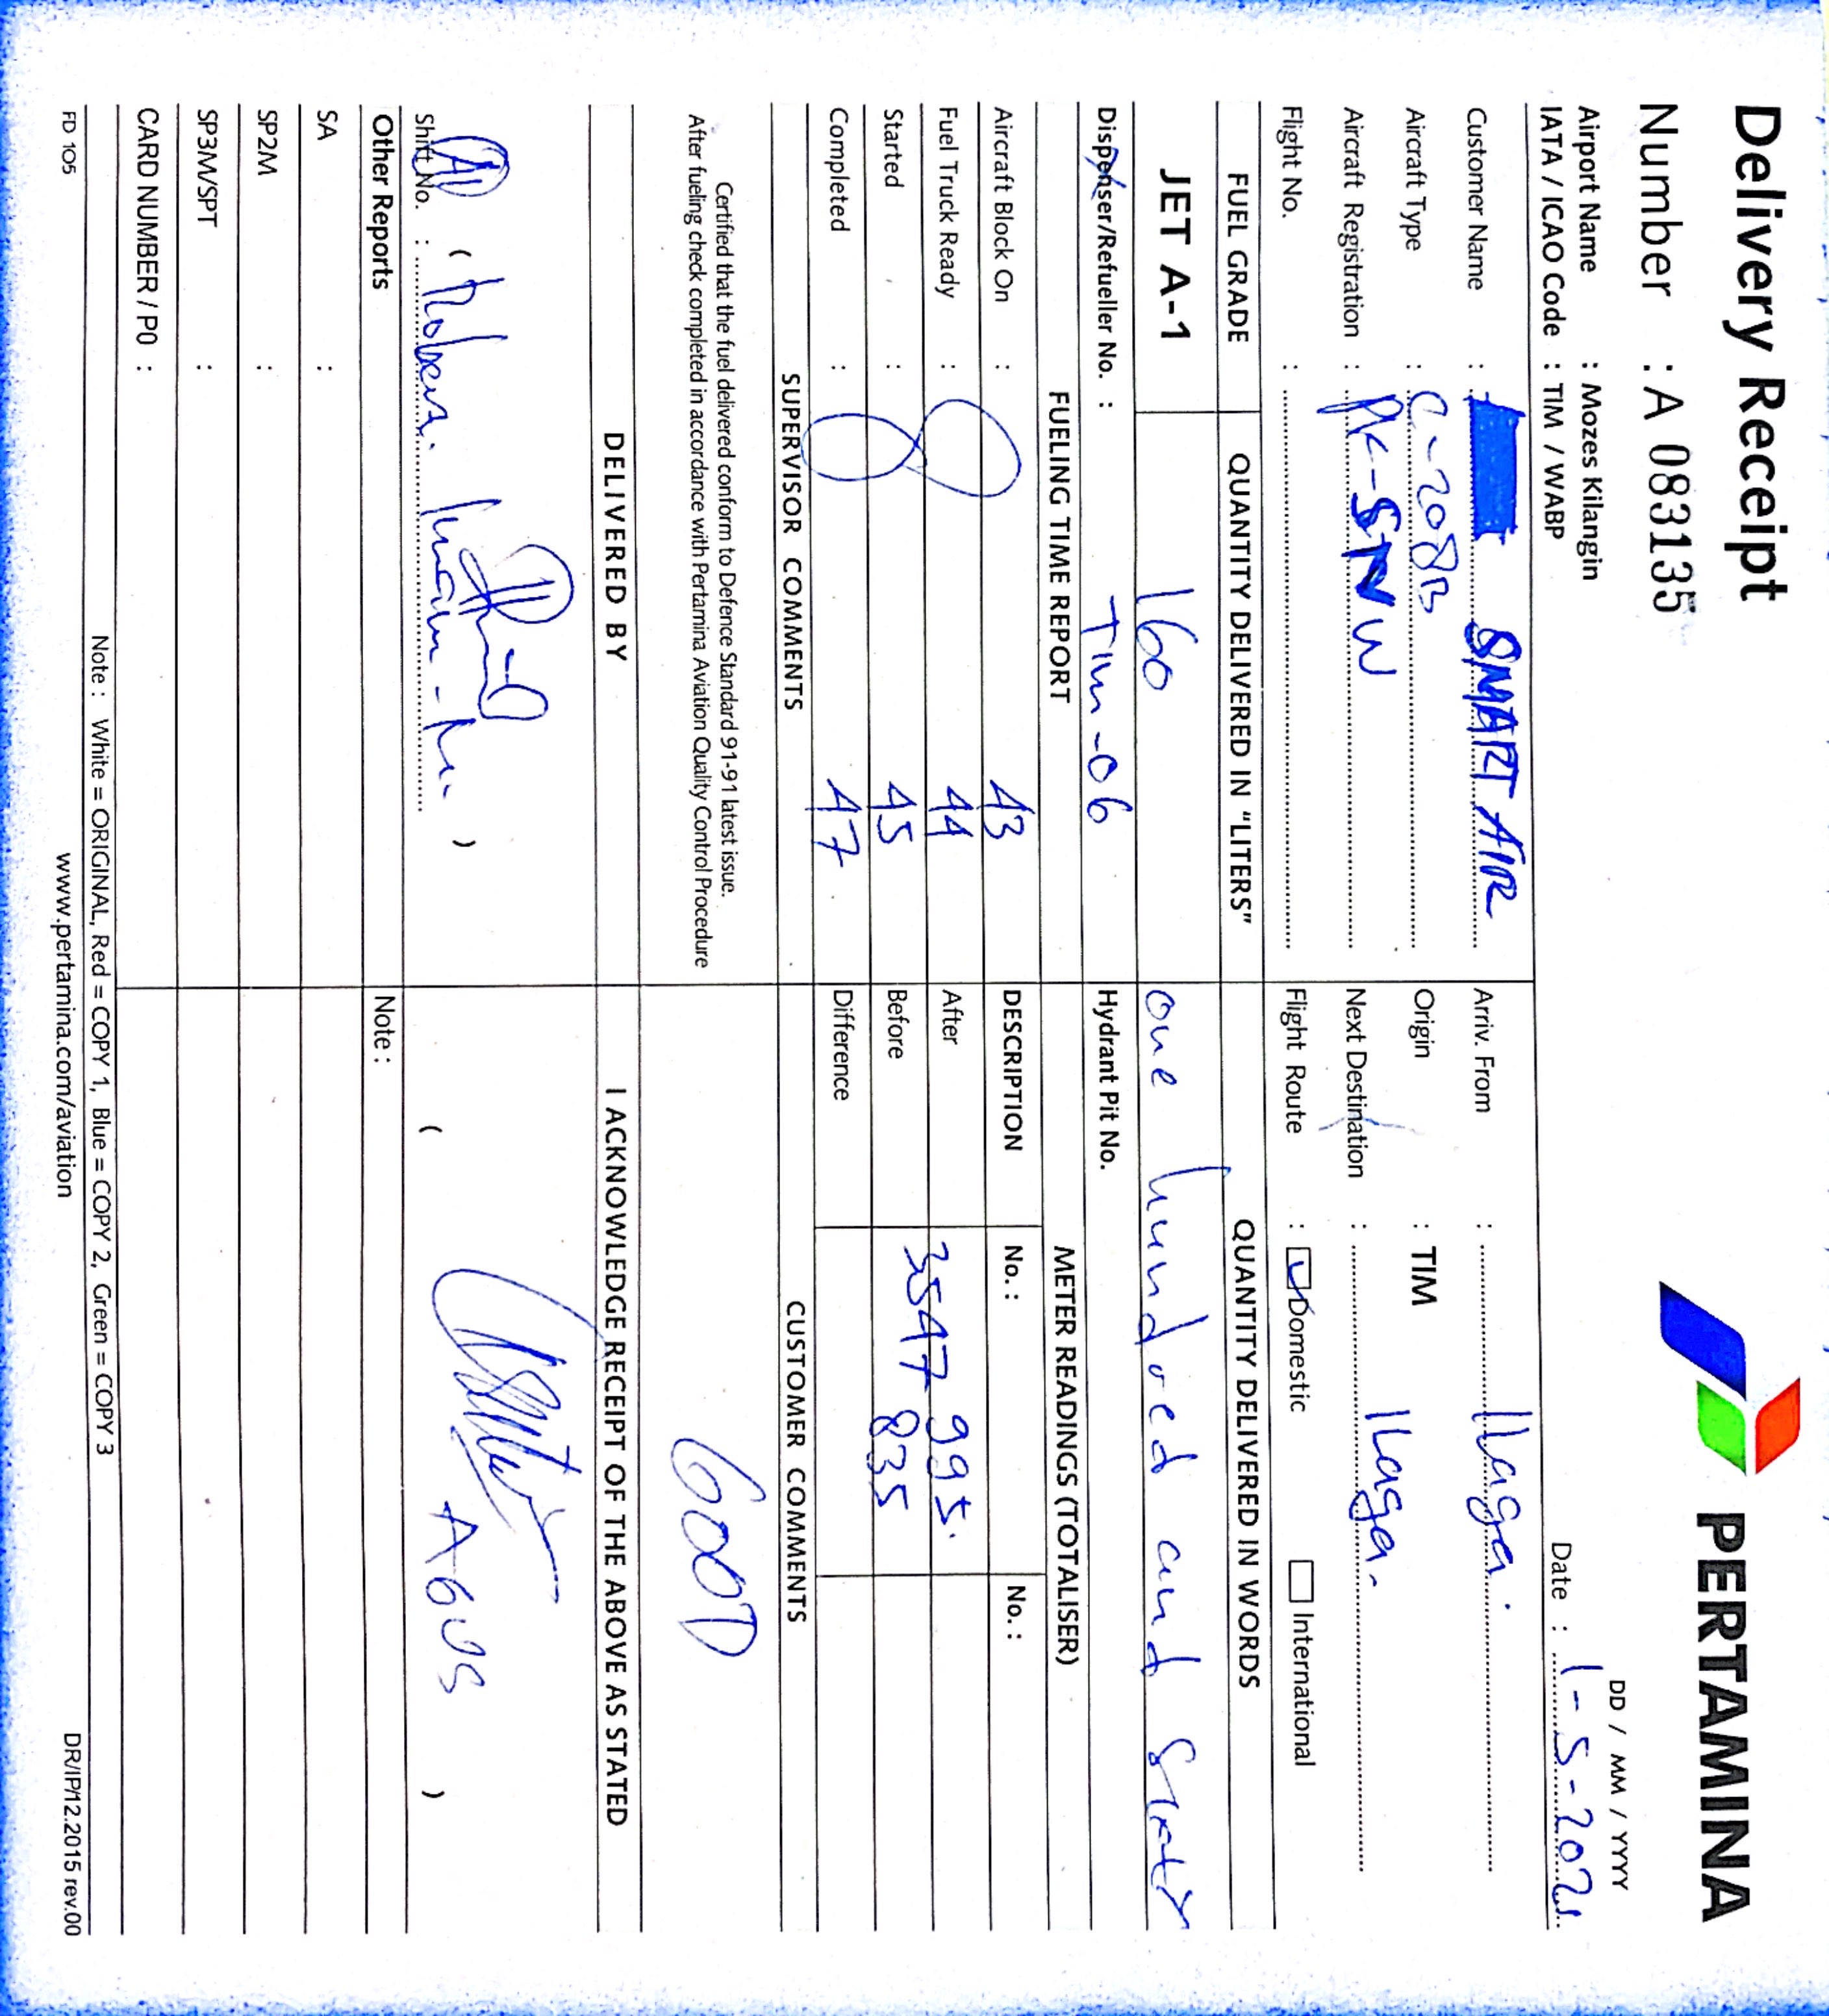 Delivery Receipt
PERTAMINA
Number : A 083135
DD / MM / YYYY
Airport Name : Mozes Kilangin
IATA / ICAO Code : TIM / WABP
Date : 1-5-2021
Customer Name : SMART AIR
Arriv. From : Ilaga.
Aircraft Type : C-208B
Origin : TIM
Aircraft Registration : PK-SNW
Next Destination : Ilaga.
Flight No. :
Flight Route : Domestic International
FUEL GRADE QUANTITY DELIVERED IN "LITERS" QUANTITY DELIVERED IN WORDS
JET A-1 160 one hundred and
Dispenser/Refueller No. : TIM-06 Hydrant Pit No.
FUELING TIME REPORT METER READINGS (TOTALISER)
Aircraft Block On : 43 DESCRIPTION No. : No. :
Fuel Truck Ready : 44 After 3547 995.
Started : 45 Before 835
Completed : 47 Difference
SUPERVISOR COMMENTS CUSTOMER COMMENTS
Certified that the fuel delivered conform to Defence Standard 91-91 latest issue.
After fueling check completed in accordance with Pertamina Aviation Quality Control Procedure
GOOD
DELIVERED BY I ACKNOWLEDGE RECEIPT OF THE ABOVE AS STATED
Shift No. : ( ) ( AGUS )
Other Reports Note :
SA :
SP2M :
SP3M/SPT :
CARD NUMBER / PO :
Note : White = ORIGINAL, Red = COPY 1, Blue = COPY 2, Green = COPY 3
FD 105 www.pertamina.com/aviation DR/IP/12.2015 rev.00